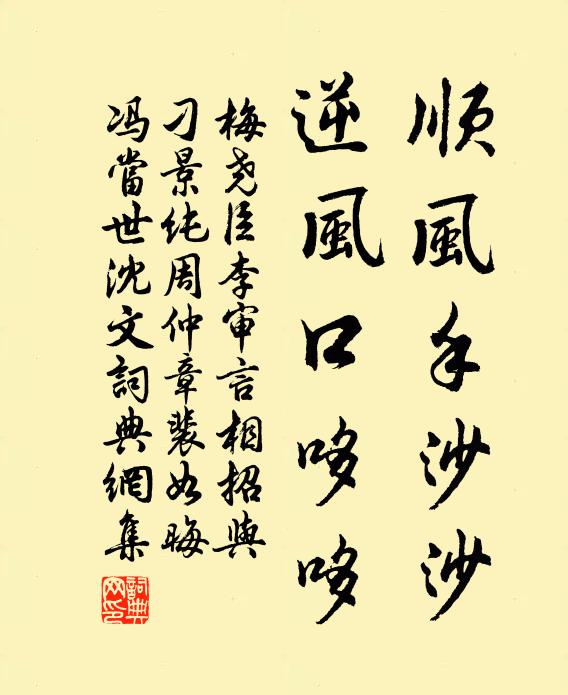 順風手沙沙
逆風口哆哆
梅尧臣李审言相招與
刁景纯周仲章裴如晦
冯當世沈文詞典網集
詞典
网印